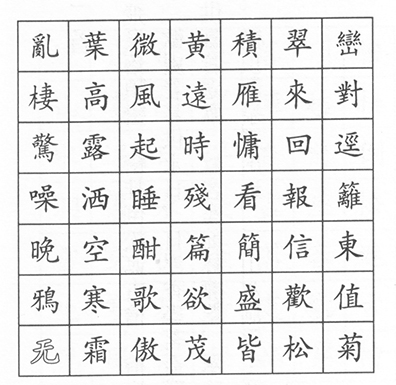 亂葉微黄積翠巒
棲高風遠雁來對
驚露起時慵回逕
噪洒睡殘看報籬
晚空酣篇簡信東
鴉寒歌欲盛歡值
无霜傲茂皆松菊